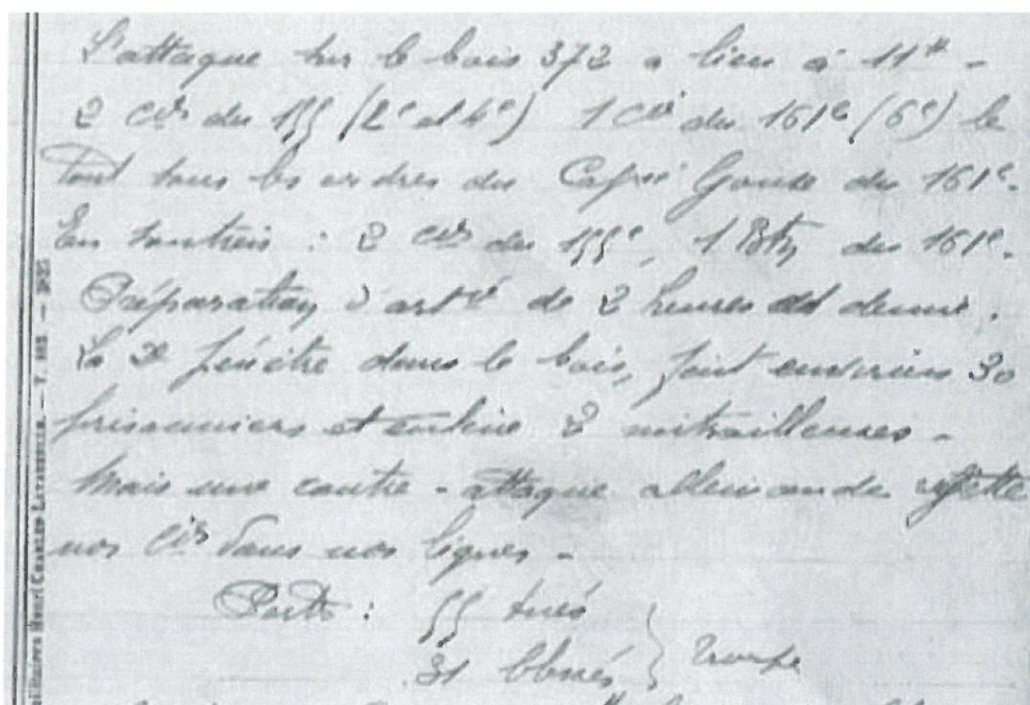 L'attaque sur le bois 372 a lieu à 11h -
2 Cies du 155 (2e et 4e) 1 Cie du 161e (6e) le
tout sous les ordres du Capne du 161e.
En soutien : 2 Cies du 155e, 1 Btn du 161e.
Préparation d'artie de 2 heures et demie.
La 2e pénètre dans le bois, fait environ 30
prisonniers et enlève 2 mitrailleuses -
Mais une contre-attaque allemande rejette
nos Cies dans nos lignes -
Pertes : 55 tués
31 blessés } troupe
Henri CHARLES-LAVAUZELLE